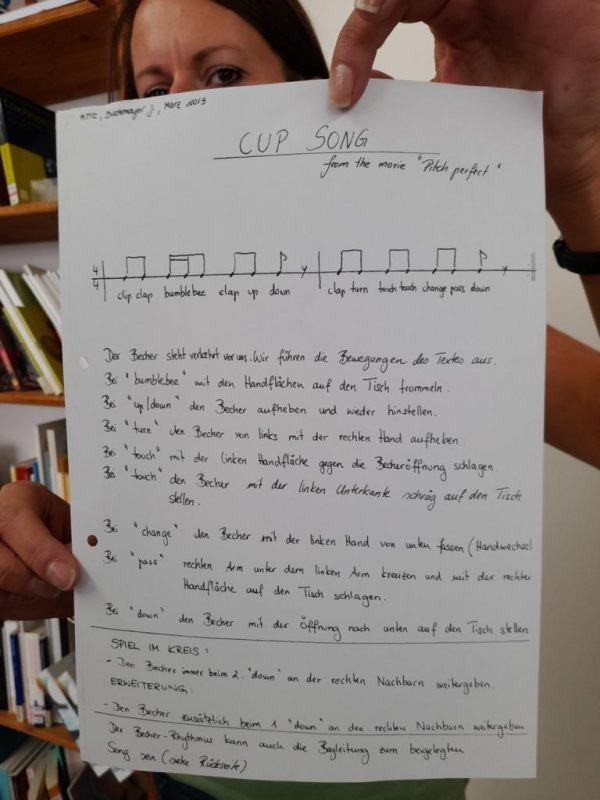 KTTC, Buchmayer J., März 2019
CUP SONG
from the movie "Pitch perfect"
4/4
clip clap bumblebee clap up down clap turn touch touch change pass down
Der Becher steht verkehrt vor uns. Wir führen die Bewegungen des Textes aus.
Bei "bumblebee" mit den Handflächen auf den Tisch trommeln.
Bei "up/down" den Becher aufheben und wieder hinstellen.
Bei "turn" den Becher von links mit der rechten Hand aufheben.
Bei "touch" mit der linken Handfläche gegen die Becheröffnung schlagen.
Bei "touch" den Becher mit der linken Unterkante schräg auf den Tisch
stellen.
Bei "change" den Becher mit der linken Hand von unten fassen (Handwechsel
Bei "pass" rechten Arm unter dem linken Arm kreuzen und mit der rechten
Handfläche auf den Tisch schlagen.
Bei "down" den Becher mit der Öffnung nach unten auf den Tisch stellen
SPIEL IM KREIS:
- Den Becher immer beim 2. "down" an der rechten Nachbarn weitergeben.
ERWEITERUNG:
- Den Becher zusätzlich beim 1 "down" an den rechten Nachbarn weitergeben
Der Becher-Rhythmus kann auch die Begleitung zum beigelegten
Song sein (siehe Rückseite)